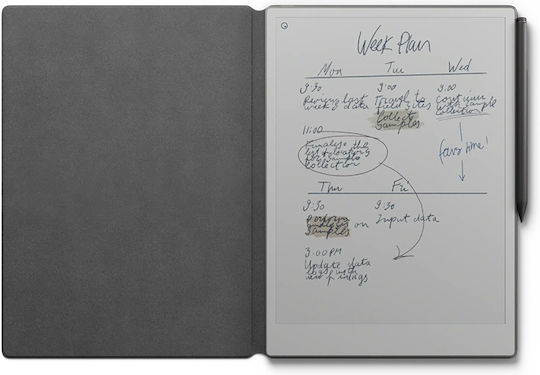 Week Plan
Mon Tue Wed
9:30 9:00 9:00
Review last Travel to Continue
week's data field sites with sample
Collect collection
samples
11:00
Finalise the
list of locations
for sample
collection
fav time!
Thu Fri
9:30 9:30
Perform on Input data
samples
3:00 PM
Update data
logs with
new findings